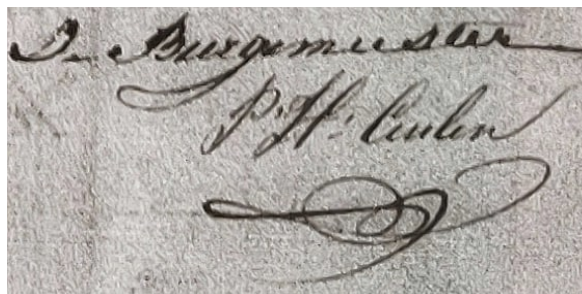 D. Burgemeester
P. H. Ceulen